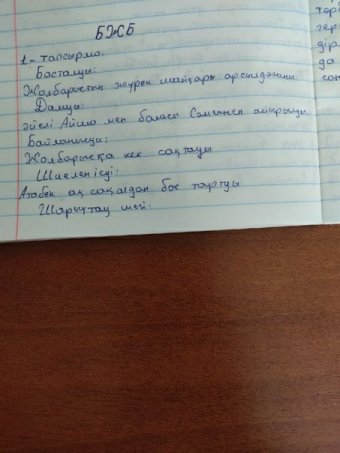 БЖБ
1 - тапсырма.
Басталуы:
Жолбарыстың жүрек шайқары арсылдағаны.
Дамуы:
әйелі Айша мен баласы Сәменнен айырылды.
Байланысуы:
Жолбарысқа кек сақтауы
Шиеленісуі:
Атабек ақ сақалдан бас тартуы
Шарықтау шегі:
тері
гер
дір
да
сон